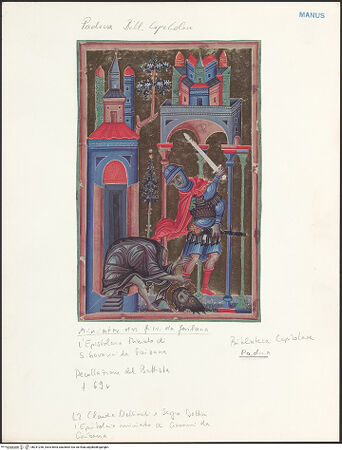 Padova Bibl. Capitolare
MANUS
da Gaibana
l'Epistolario miniato di
Giovanni da Gaibana
Decollazione del Battista
f 69v
Biblioteca Capitolare
Padova
Claudio Bellinati e Sergio Bettini
l'Epistolario miniato di Giovanni da
Gaibana